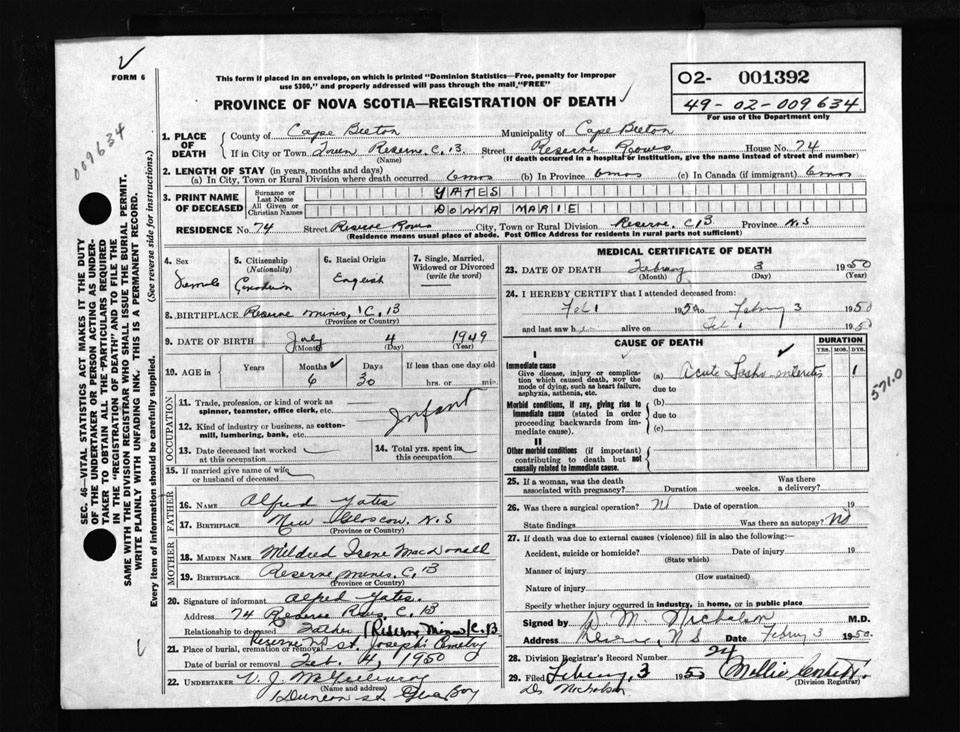 FORM 6
This form if placed in an envelope, on which is printed "Dominion Statistics—Free, penalty for improper
use $300," and properly addressed will pass through the mail "FREE"
PROVINCE OF NOVA SCOTIA—REGISTRATION OF DEATH
O2- 001392
49-02-009634
For use of the Department only
009634
SEC. 46—VITAL STATISTICS ACT MAKES IT THE DUTY
OF THE UNDERTAKER OR PERSON ACTING AS UNDER-
TAKER TO OBTAIN ALL THE PARTICULARS REQUIRED
IN THE "REGISTRATION OF DEATH" AND TO FILE THE
SAME WITH THE DIVISION REGISTRAR WHO SHALL ISSUE THE BURIAL PERMIT.
WRITE PLAINLY WITH UNFADING INK. THIS IS A PERMANENT RECORD.
Every item of information should be carefully supplied. (See reverse side for instructions.)
1. PLACE OF DEATH
County of Cape Breton Municipality of Cape Breton
If in City or Town Town Reserve C.B Street Reserve Rows House No. 74
(Name) (If death occurred in a hospital or institution, give the name instead of street and number)
2. LENGTH OF STAY (in years, months and days)
(a) In City, Town or Rural Division where death occurred 6mos (b) In Province 6mos (c) In Canada (if immigrant) 6mos
3. PRINT NAME OF DECEASED
Surname or Last Name YATES
All Given or Christian Names DONNA MARIE
RESIDENCE No. 74 Street Reserve Rows City, Town or Rural Division Reserve, C.B Province N.S
(Residence means usual place of abode. Post Office Address for residents in rural parts not sufficient)
4. Sex
Female
5. Citizenship (Nationality)
Canadian
6. Racial Origin
English
7. Single, Married, Widowed or Divorced (write the word)
8. BIRTHPLACE Reserve Mines, C.B
(Province or Country)
9. DATE OF BIRTH July 4 1949
(Month) (Day) (Year)
10. AGE in Years Months Days If less than one day old
6 30 hrs. or min.
OCCUPATION
11. Trade, profession, or kind of work as
spinner, teamster, office clerk, etc.
Infant
12. Kind of industry or business, as cotton-
mill, lumbering, bank, etc.
13. Date deceased last worked
at this occupation
14. Total yrs. spent in
this occupation
15. If married give name of wife
or husband of deceased
FATHER
16. Name Alfred Yates
17. Birthplace New Glascow, N.S
(Province or Country)
MOTHER
18. Maiden Name Mildred Irene MacDonell
19. Birthplace Reserve Mines, C.B
(Province or Country)
20. Signature of informant Alfred Yates.
Address 74 Reserve Rows C.B
Relationship to deceased Father (Reserve Mines C.B
21. Place of burial, cremation or removal Reserve N.S St. Josephs Cemetry
Date of burial or removal Feb. 4, 1950
22. UNDERTAKER V. J. McGillivray
Duncan St Glace Bay
MEDICAL CERTIFICATE OF DEATH
23. DATE OF DEATH February 3 1950
(Month) (Day) (Year)
24. I HEREBY CERTIFY that I attended deceased from:
Feb 1 1950 to February 3 1950
and last saw her alive on Feb 1 1950
CAUSE OF DEATH
DURATION
YRS. MOS. DYS.
I
Immediate cause
Give disease, injury or complica-
tion which caused death, not the
mode of dying, such as heart failure,
asphyxia, asthenia, etc.
(a) Acute Gastro-enteritis 1
due to
571.0
Morbid conditions, if any, giving rise to
immediate cause (stated in order
proceeding backwards from im-
mediate cause).
(b)
due to
(c)
II
Other morbid conditions (if important)
contributing to death but not
causally related to immediate cause.
25. If a woman, was the death
associated with pregnancy? Duration weeks. Was there
a delivery?
26. Was there a surgical operation? No Date of operation 19
State findings Was there an autopsy? No
27. If death was due to external causes (violence) fill in also the following:
Accident, suicide or homicide? Date of injury 19
(State which)
Manner of injury
(How sustained)
Nature of injury
Specify whether injury occurred in industry, in home, or in public place
Signed by D. M. Nicholson M.D.
Address N.S Date Febury 3 1950.
28. Division Registrar's Record Number 24
29. Filed Febury, 3 1950 Mollie
(Division Registrar)
Dr Nicholson